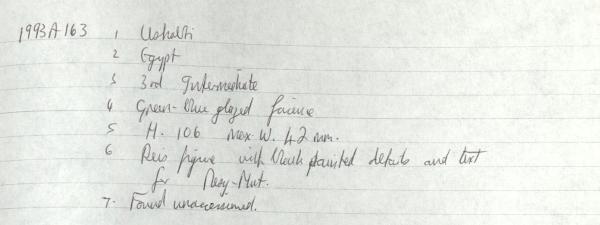 1993A163 1 Ushabti
2 Egypt
3 3rd Intermediate
4 Green-blue glazed faience
5 H. 106 Max W. 42 mm.
6 Reis figure with black painted details and text
for Mery-Mut.
7. Found unaccessioned.